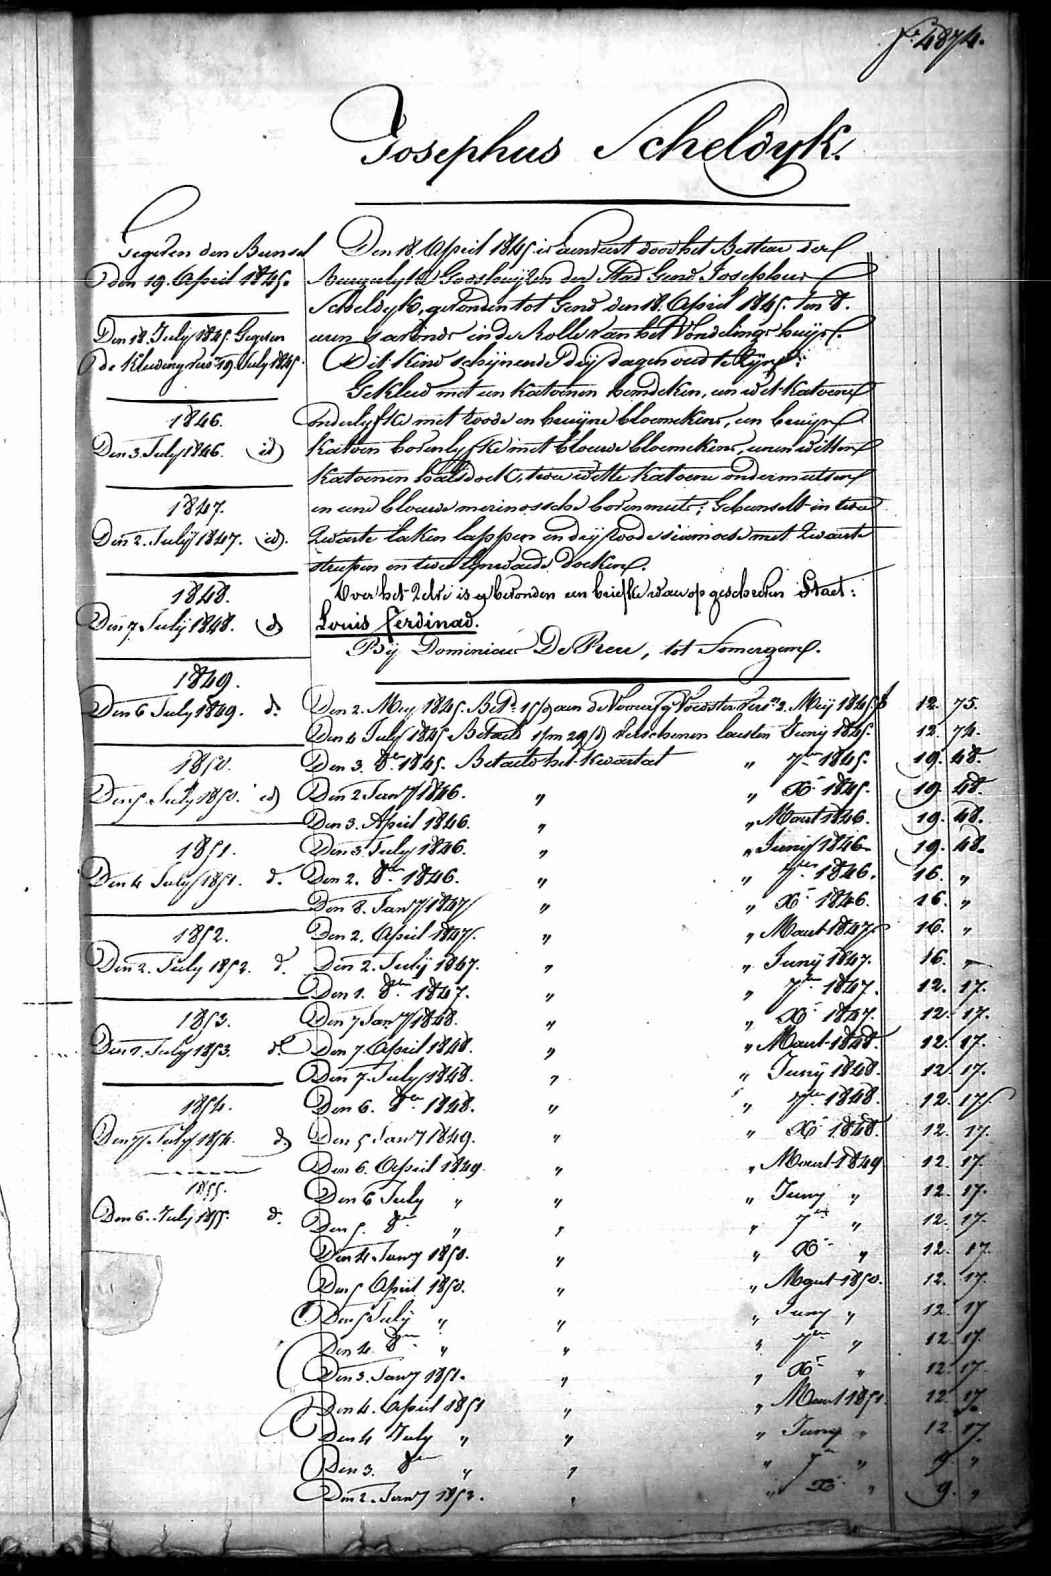 f.º 4874.
Josephus Scheldyk.
Gegeven den Bunsel
den 19. April 1845.
Den 18. July 1845. Gegeven
de Kleeding van 19. July 1845.
1846.
Den 3. July 1846. id
1847.
Den 2. July 1847. id.
1848.
Den 7. July 1848. d
1849.
Den 6 July 1849. d.
1850.
Den 5 July 1850. id
1851.
Den 4 July 1851. d.
1852.
Den 2. July 1852. d.
1853.
Den 1. July 1853. d
1854.
Den 7 July 1854. d
1855.
Den 6. July 1855. d.
Den 18. April 1845 is aenveirt door het Bestier der
Burgerlyke Godshuijzen der Stad Gend Josephus
Scheldyk, gevonden tot Gend den 18. April 1845. ten 8.
uren 's avonds in de Rolle van het Vondelings huijs.
Dit Kind schijnende drij dagen oud te zijn:
Gekleed met een katoenen hemdeken, een wit katoene
onderlyfke met roode en bruijne bloemekens, een bruijn
katoen bovenlyfke met blauwe bloemekens, eenen witten
katoenen halsdoek, twee witte katoene ondermutsen
en eene blauwe merinossche bovenmuts; Gebunselt in twee
zwarte laken lappen en drij roode siamois met zwarte
streepen en twee lynwaede doeken.
Over het zelve is gevonden een briefke waer op geschreven staet:
Louis Ferdinad.
Bij Dominicus De Preu, tot Somergem.
Den 2. Mey 1845. Bet. aen de Voedster 2. Meij 1845. f 12. 75.
Den 4 July 1845 Betaeld verschenen lasten Junij 1845. 12. 74.
Den 3. 8er 1845. Betaeld het kwartael " 7ber 1845. 19. 48.
Den 2 Janry 1846. " " Xr 1845. 19. 48.
Den 3. April 1846. " " Maert 1846. 19. 48.
Den 3. July 1846. " " Junij 1846. 19. 48.
Den 2. 8er 1846. " " 7ber 1846. 16. "
Den 8. Janry 1847 " " Xr 1846. 16. "
Den 2. April 1847. " " Maert 1847 16. "
Den 2. July 1847. " " Junij 1847. 16. "
Den 1. 8er 1847. " " 7ber 1847. 12. 17.
Den 7 Janry 1848. " " Xr 1847. 12. 17.
Den 7. April 1848. " " Maert 1848. 12. 17.
Den 7. July 1848. " " Junij 1848. 12. 17.
Den 6. 8er 1848. " " 7ber 1848. 12. 17
Den 5 Janry 1849. " " Xr 1848. 12. 17.
Den 6. April 1849. " " Maert 1849 12. 17.
Den 6 July " " " Juny " 12. 17.
Den 5. 8er " " " 7ber " 12. 17.
Den 4. Janry 1850. " " Xr " 12. 17.
Den 5 April 1850. " " Maert 1850. 12. 17.
Den 5 July " " " Juny " 12. 17
Den 4. 8er " " " 7ber " 12. 17.
Den 3. Janry 1851. " " Xr " 12. 17.
Den 4. April 1851 " " Maert 1851. 12. 17.
Den 4 July " " " Juny " 12. 17.
Den 3. 8er " " " 7ber " 9. "
Den 2. Janry 1852. " " Xr " 9. "